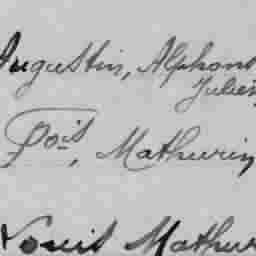 Augustin, Alphons
Julien
Fois, Mathurin
Louis Mathur